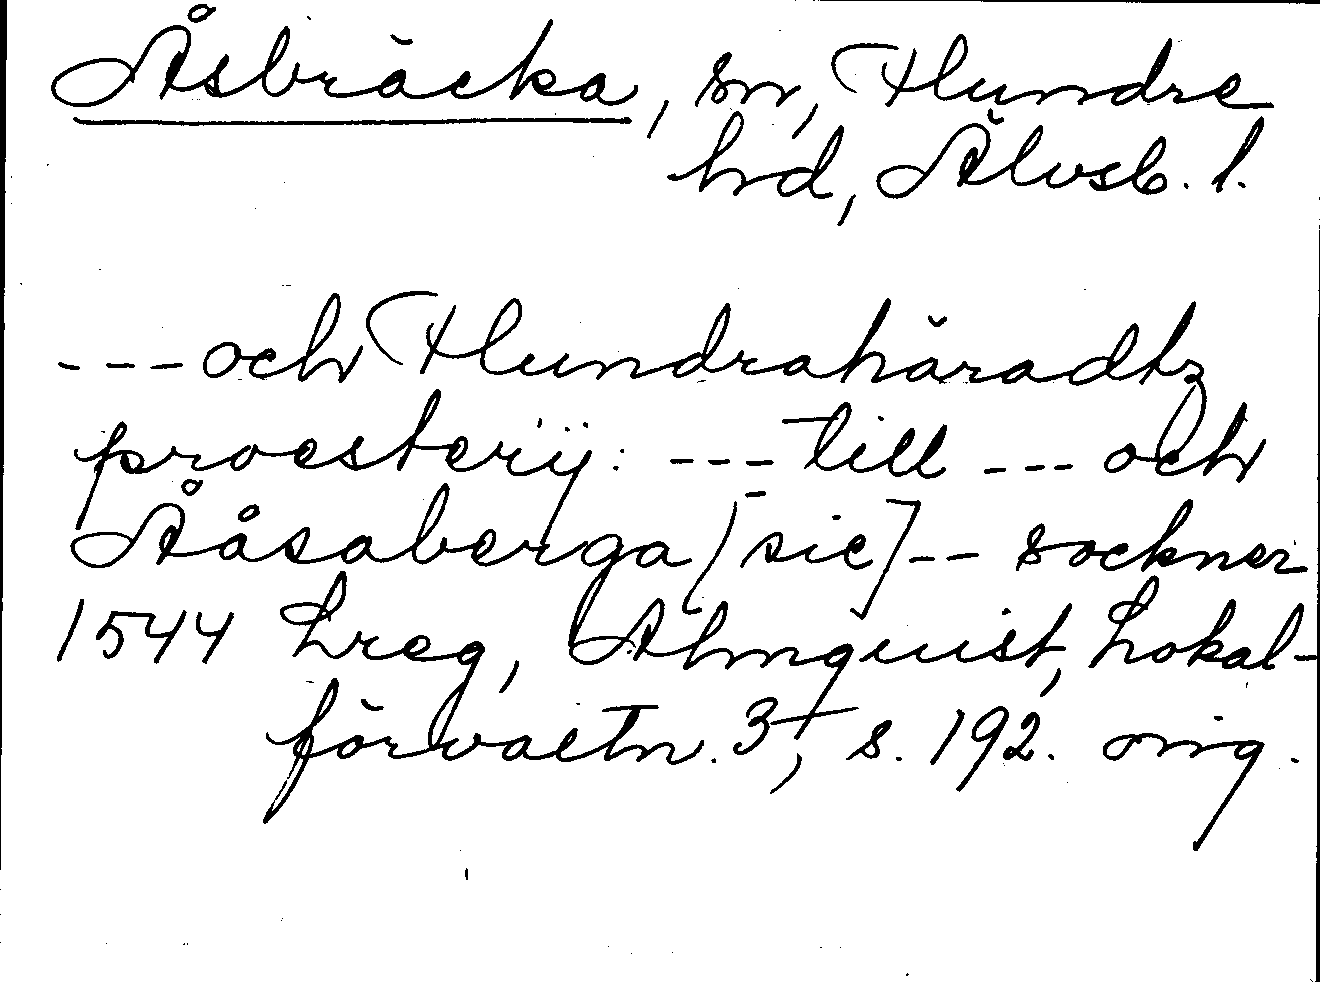 Åsbräcka, sn, Flundre
hrd, Älvsb. l.
--- och Flundrahäradtz
proesterij: --- till --- och
Ååsaberga [sic] -- sockner
1544 Lreg, Almquist, Lokal-
förvaltn. 3, s. 192. orig.